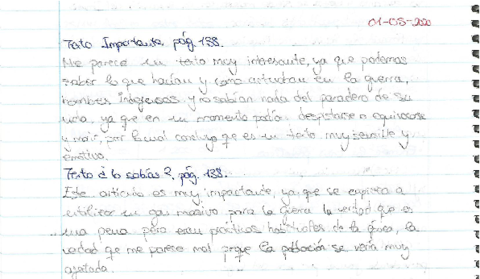 01-05-2020
Texto Importante, pág. 138.
Me parece un texto muy interesante, ya que podemos
saber lo que hacían y como actuaban en la guerra,
hombres y no sabían nada del paradero de su
vida, ya que en un momento podía despistarse o equivocarse
y morir, por lo cual concluyo que es un texto muy sensible y
emotivo.
Texto ¿lo sabías?, pág. 138.
Este artículo es muy importante, ya que se empieza a
utilizar un gas masivo para la guerra la verdad que es
una pena pero eran practicas de la época, la
verdad que me parece mal porque la población se vería muy
agotada.